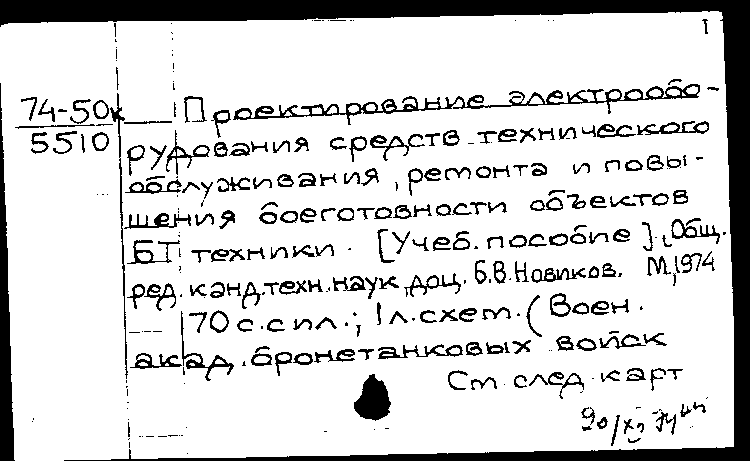 I
74-50к
5510
Проектирование электрообо-
рудования средств технического
обслуживания, ремонта и повы-
шения боеготовности объектов
БТ техники. [Учеб. пособие]. Общ.
ред. канд. техн. наук, доц. Б.В. Новиков. М, 1974
170 с. с ил.; 1 л. схем. (Воен.
акад. бронетанковых войск
См. след. карт